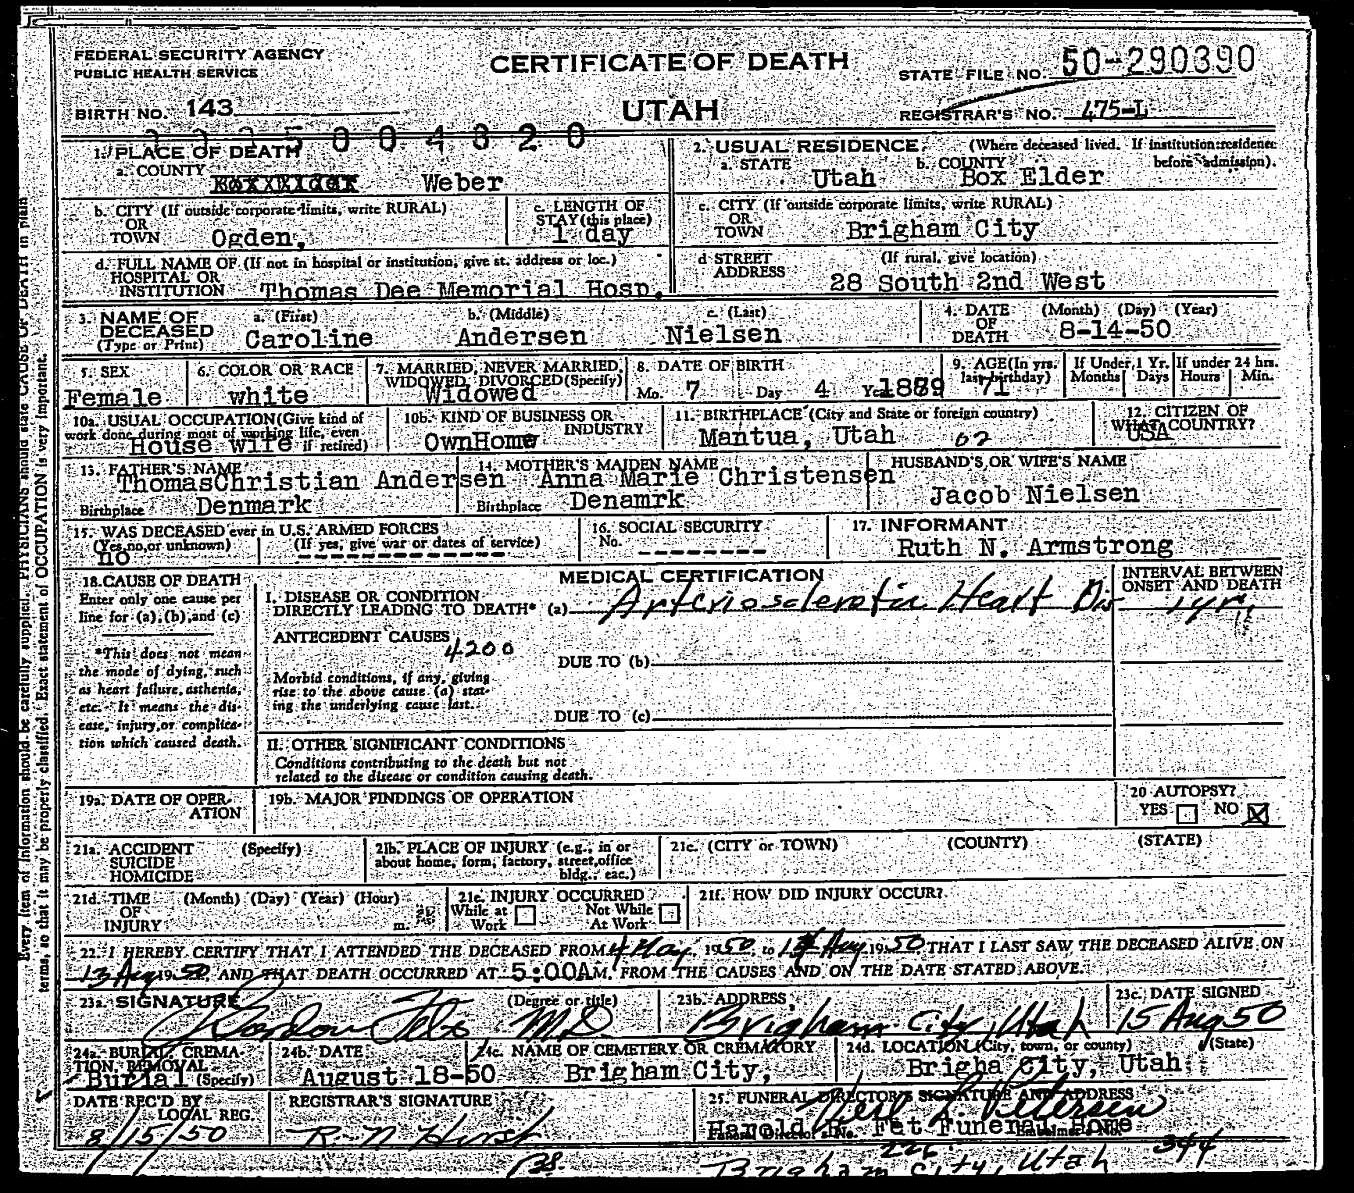 FEDERAL SECURITY AGENCY
PUBLIC HEALTH SERVICE
CERTIFICATE OF DEATH
STATE FILE NO. 50-290390
BIRTH NO. 143
UTAH
REGISTRAR'S NO. 475-L
1. PLACE OF DEATH
a. COUNTY Weber
b. CITY (If outside corporate limits, write RURAL)
OR
TOWN Ogden,
c. LENGTH OF
STAY (this place)
1 day
d. FULL NAME OF (If not in hospital or institution, give st. address or loc.)
HOSPITAL OR
INSTITUTION Thomas Dee Memorial Hosp.
2. USUAL RESIDENCE. (Where deceased lived. If institution: residence
before admission).
a. STATE Utah b. COUNTY Box Elder
c. CITY (If outside corporate limits, write RURAL)
OR
TOWN Brigham City
d STREET (If rural, give location)
ADDRESS 28 South 2nd West
3. NAME OF DECEASED (Type or Print) a. (First) b. (Middle) c. (Last)
Caroline Andersen Nielsen
4. DATE OF DEATH (Month) (Day) (Year)
8-14-50
5. SEX
Female
6. COLOR OR RACE
white
7. MARRIED, NEVER MARRIED,
WIDOWED, DIVORCED (Specify)
Widowed
8. DATE OF BIRTH
Mo. 7 Day 4 1879
9. AGE (In yrs. last birthday)
71
If Under 1 Yr.
Months Days
If under 24 hrs.
Hours Min.
10a. USUAL OCCUPATION (Give kind of
work done during most of working life, even
if retired)
House wife
10b. KIND OF BUSINESS OR
INDUSTRY
OwnHome
11. BIRTHPLACE (City and State or foreign country)
Mantua, Utah 02
12. CITIZEN OF
WHAT COUNTRY?
USA
13. FATHER'S NAME
ThomasChristian Andersen
Birthplace Denmark
14. MOTHER'S MAIDEN NAME
Anna Marie Christensen
Birthplace Denamrk
HUSBAND'S OR WIFE'S NAME
Jacob Nielsen
15. WAS DECEASED ever in U.S. ARMED FORCES
(Yes, no, or unknown) (If yes, give war or dates of service)
no
16. SOCIAL SECURITY
No. --------
17. INFORMANT
Ruth N. Armstrong
18. CAUSE OF DEATH
Enter only one cause per
line for (a), (b), and (c)
*This does not mean
the mode of dying, such
as heart failure, asthenia,
etc. It means the dis-
ease, injury, or complica-
tion which caused death.
MEDICAL CERTIFICATION
INTERVAL BETWEEN
ONSET AND DEATH
I. DISEASE OR CONDITION
DIRECTLY LEADING TO DEATH* (a) Arteriosclerotic Heart Dis 1 yr.
ANTECEDENT CAUSES
4200
DUE TO (b)
Morbid conditions, if any, giving
rise to the above cause (a) stat-
ing the underlying cause last.
DUE TO (c)
II. OTHER SIGNIFICANT CONDITIONS
Conditions contributing to the death but not
related to the disease or condition causing death.
19a. DATE OF OPER-
ATION
19b. MAJOR FINDINGS OF OPERATION
20 AUTOPSY?
YES NO
21a. ACCIDENT (Specify)
SUICIDE
HOMICIDE
21b. PLACE OF INJURY (e.g., in or
about home, form, factory, street, office
bldg., etc.)
21c. (CITY or TOWN) (COUNTY) (STATE)
21d. TIME (Month) (Day) (Year) (Hour)
OF
INJURY m.
21e. INJURY OCCURRED
While at Work Not While At Work
21f. HOW DID INJURY OCCUR?
22. I HEREBY CERTIFY THAT I ATTENDED THE DECEASED FROM 4 May, 1950, to Aug, 1950 THAT I LAST SAW THE DECEASED ALIVE ON
13 Aug 1950, AND THAT DEATH OCCURRED AT 5:00AM. FROM THE CAUSES AND ON THE DATE STATED ABOVE.
23a. SIGNATURE (Degree or title)
Gordon MD
23b. ADDRESS
Brigham City, Utah
23c. DATE SIGNED
15 Aug 50
24a. BURIAL, CREMA-
TION, REMOVAL
Burial (Specify)
24b. DATE
August 18-50
24c. NAME OF CEMETERY OR CREMATORY
Brigham City,
24d. LOCATION (City, town, or county) (State)
Brigha City, Utah
DATE REC'D BY
LOCAL REG.
8/15/50
REGISTRAR'S SIGNATURE
R. N. Hirst
25. FUNERAL DIRECTOR'S SIGNATURE AND ADDRESS
L. Petersen
Harold B. Fet Funeral Home
226 344
Brigham City, Utah
Every item of information should be carefully supplied. PHYSICIANS should state CAUSE OF DEATH in plain
terms, so that it may be properly classified. Exact statement of OCCUPATION is very important.